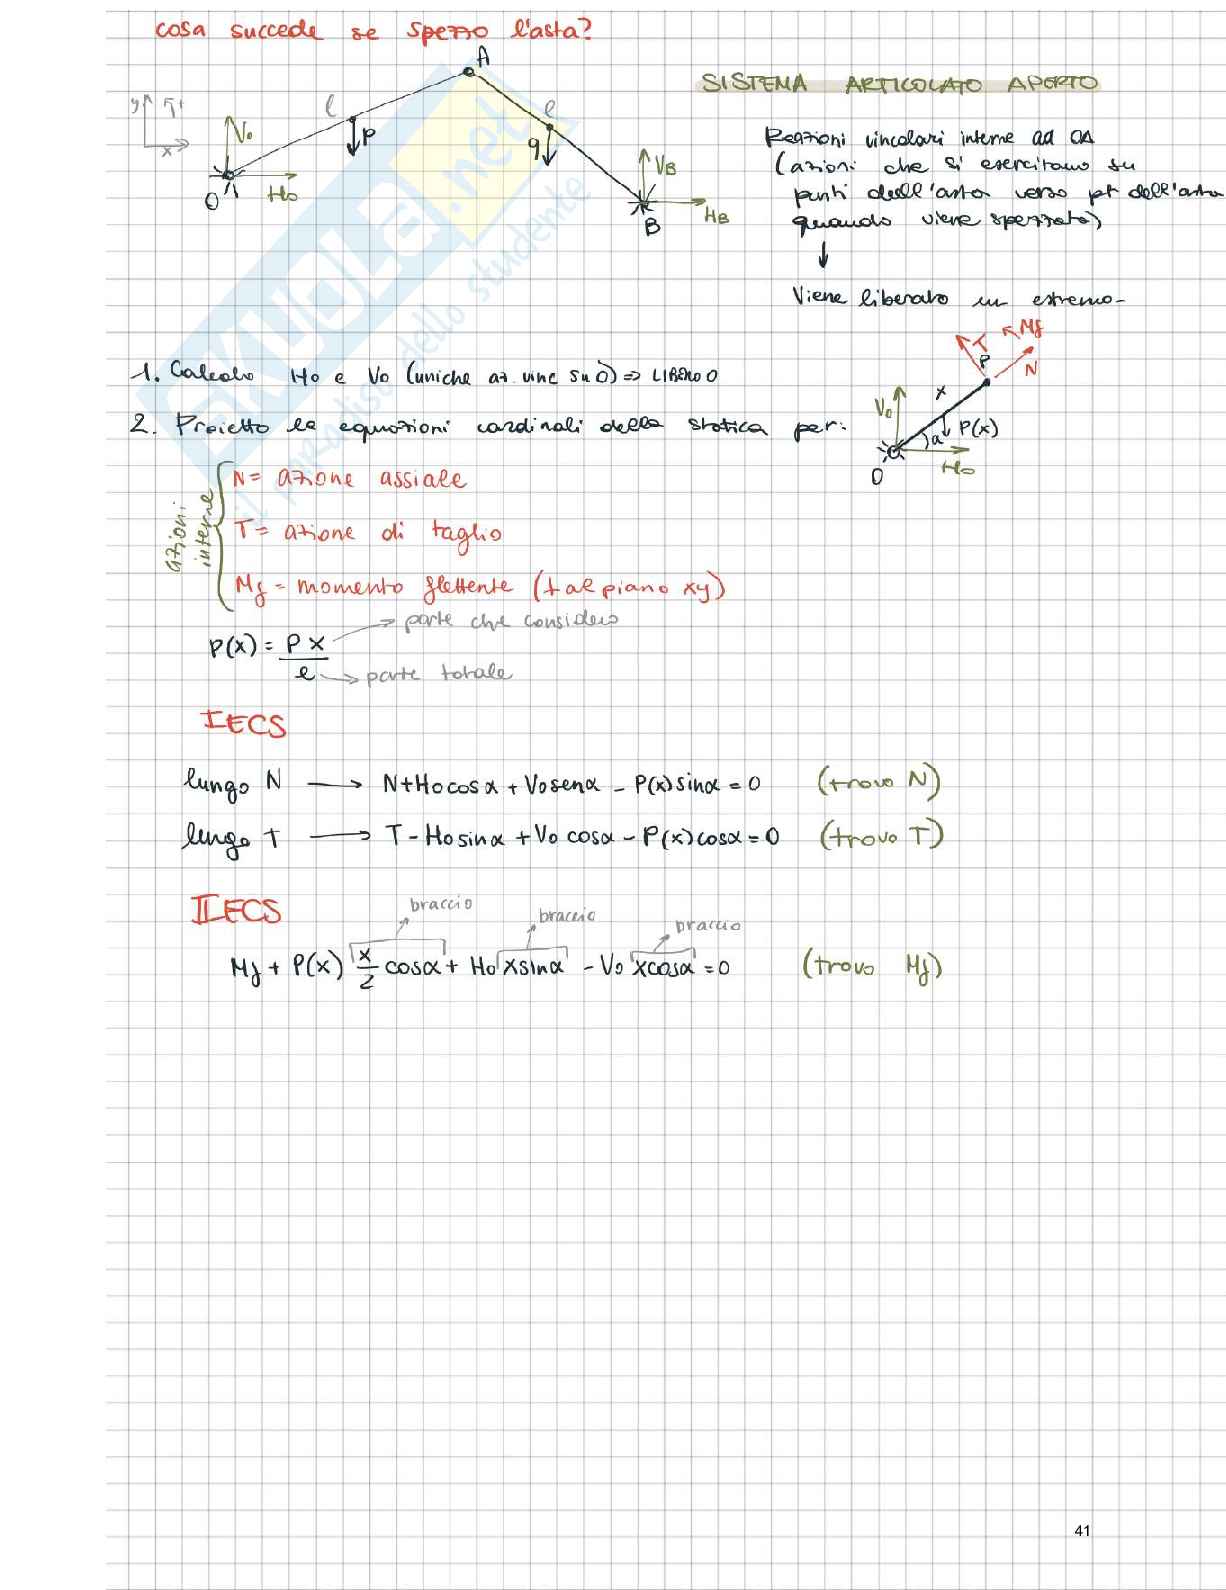 cosa succede se spezzo l'asta?
A
SISTEMA ARTICOLATO APERTO
y
x
l
P
l
q
V₀
H₀
O
V_B
H_B
B
Reazioni vincolari interne ad OA
(azioni che si esercitano su
punti dell'asta verso pt dell'asta
quando viene spezzata)
↓
Viene liberato un estremo
1. Calcolo H₀ e V₀ (uniche az. vinc su O) => LIBERO O
2. Proietto le equazioni cardinali della statica per:
T
Mf
P
N
V₀
x
α
P(x)
H₀
O
azioni interne
N = azione assiale
T = azione di taglio
Mf = momento flettente (⊥ al piano xy)
P(x) = P x / l
→ parte che considero
→ parte totale
IECS
lungo N → N + H₀ cosα + V₀ senα - P(x) sinα = 0 (trovo N)
lungo T → T - H₀ sinα + V₀ cosα - P(x) cosα = 0 (trovo T)
IIECS
braccio braccio braccio
Mf + P(x) x/2 cosα + H₀ x sinα - V₀ x cosα = 0 (trovo Mf)
SKUOLA.net
il paradiso dello studente
41